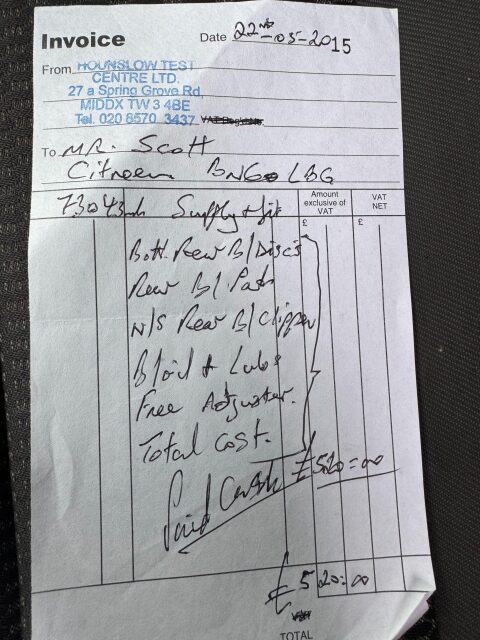 Invoice Date 22nd-05-2015
From HOUNSLOW TEST
CENTRE LTD.
27 a Spring Grove Rd
MIDDX TW3 4BE
Tel. 020 8570 3437
To MR. Scott
Citroen BN60 LBG
Amount exclusive of VAT VAT NET
73043 Supply & fit £ £
Both Rear B/Discs
Rear B/Pads
N/S Rear B/Clipper
B/oil & Lube
Free Adjuster.
Total cost.
Paid Cash £520=00
£520=00
TOTAL